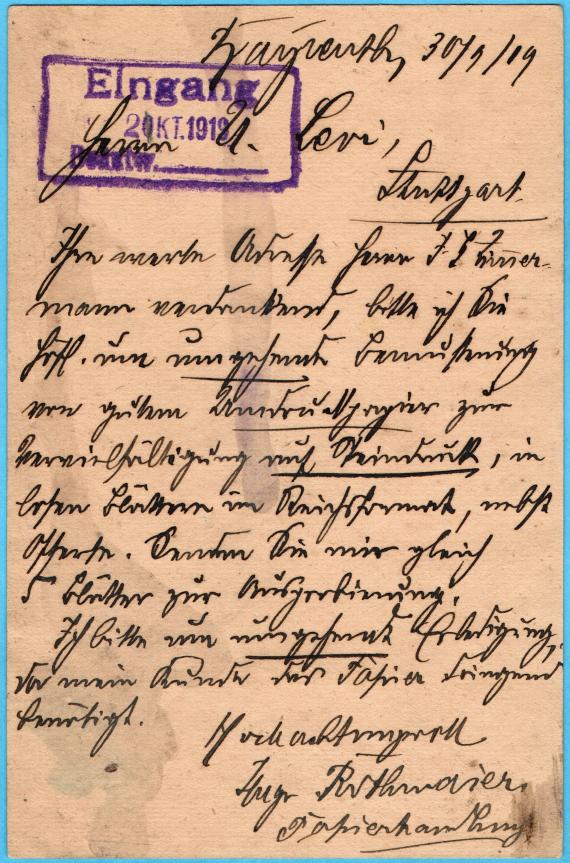 Bayreuth, 30/9/19
Eingang
2 OKT. 1919
Herrn A. Levi,
Stuttgart.
Ihre werte Adresse Herrn
mann verdankend, bitte ich Sie
höfl. um umgehende Bemusterung
von gutem Umdruckpapier zur
Vervielfältigung auf Steindruck, in
losen Blättern im Reichsformat, nebst
Offerte. Senden Sie mir gleich
5 Blätter zur Ausprobierung.
Ich bitte um umgehende Erledigung,
da mein Kunde das Papier dringend
benötigt.
Hochachtungsvoll
Hugo Rothmaier.
Papierhandlung